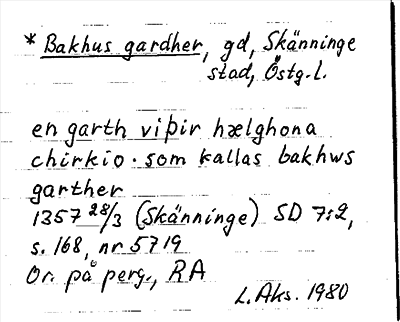 * Bakhus gardher, gd, Skänninge
stad, Östg. L.
en garth viþir hælghona
chirkio · som kallas bakhws
garther
1357 28/3 (Skänninge) SD 7:2,
s. 168, nr 5719
Or. på perg., RA
L. Aks. 1980